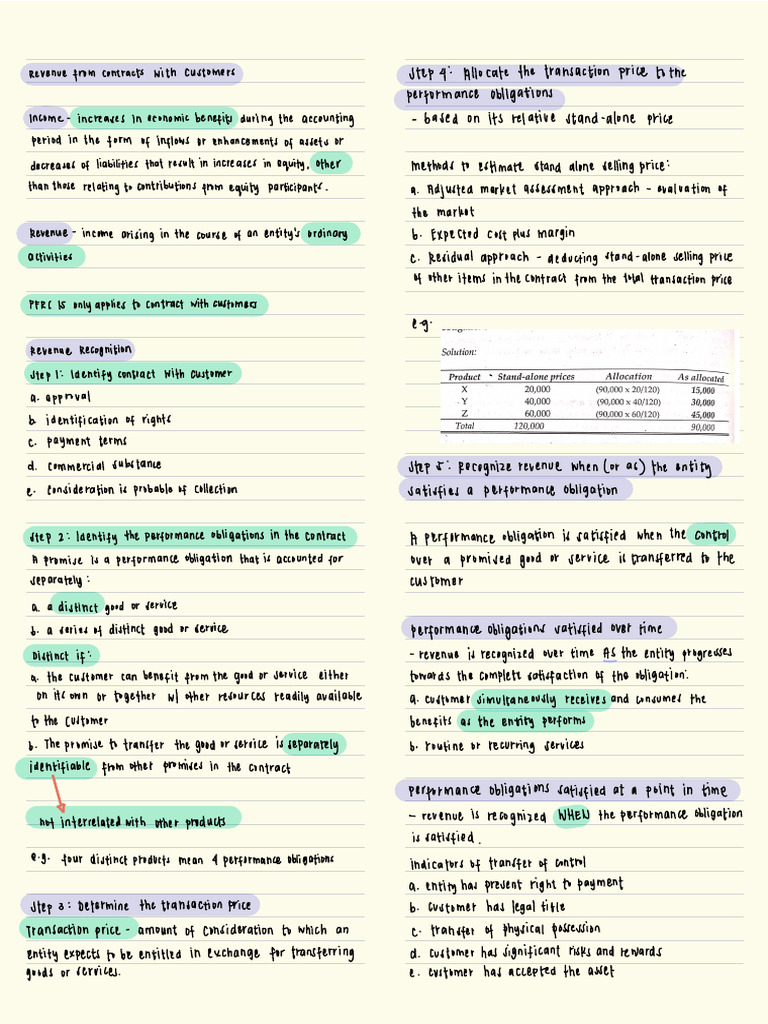 Revenue from contracts with customers
Income - increases in economic benefits during the accounting
period in the form of inflows or enhancements of assets or
decreases of liabilities that result in increases in equity, other
than those relating to contributions from equity participants.
Revenue - income arising in the course of an entity's ordinary
activities
PFRS 15 only applies to contract with customers
Revenue Recognition
Step 1: Identify contract with customer
a. approval
b. identification of rights
c. payment terms
d. commercial substance
e. consideration is probable of collection
Step 2: Identify the performance obligations in the contract
A promise is a performance obligation that is accounted for
separately:
a. a distinct good or service
b. a series of distinct good or service
Distinct if:
a. the customer can benefit from the good or service either
on its own or together w/ other resources readily available
to the customer
b. The promise to transfer the good or service is separately
identifiable from other promises in the contract
not interrelated with other products
e.g. four distinct products mean 4 performance obligations
Step 3: Determine the transaction price
Transaction price - amount of consideration to which an
entity expects to be entitled in exchange for transferring
goods or services.
Step 4: Allocate the transaction price to the
performance obligations
- based on its relative stand-alone price
methods to estimate stand alone selling price:
a. Adjusted market assessment approach - evaluation of
the market
b. Expected cost plus margin
c. Residual approach - deducting stand-alone selling price
of other items in the contract from the total transaction price
e.g.
Solution:
Product Stand-alone prices Allocation As allocated
X 20,000 (90,000 x 20/120) 15,000
Y 40,000 (90,000 x 40/120) 30,000
Z 60,000 (90,000 x 60/120) 45,000
Total 120,000 90,000
Step 5: Recognize revenue when (or as) the entity
satisfies a performance obligation
A performance obligation is satisfied when the control
over a promised good or service is transferred to the
customer
performance obligations satisfied over time
- revenue is recognized over time AS the entity progresses
towards the complete satisfaction of the obligation:
a. customer simultaneously receives and consumes the
benefits as the entity performs
b. routine or recurring services
performance obligations satisfied at a point in time
- revenue is recognized WHEN the performance obligation
is satisfied.
indicators of transfer of control
a. entity has present right to payment
b. customer has legal title
c. transfer of physical possession
d. customer has significant risks and rewards
e. customer has accepted the asset